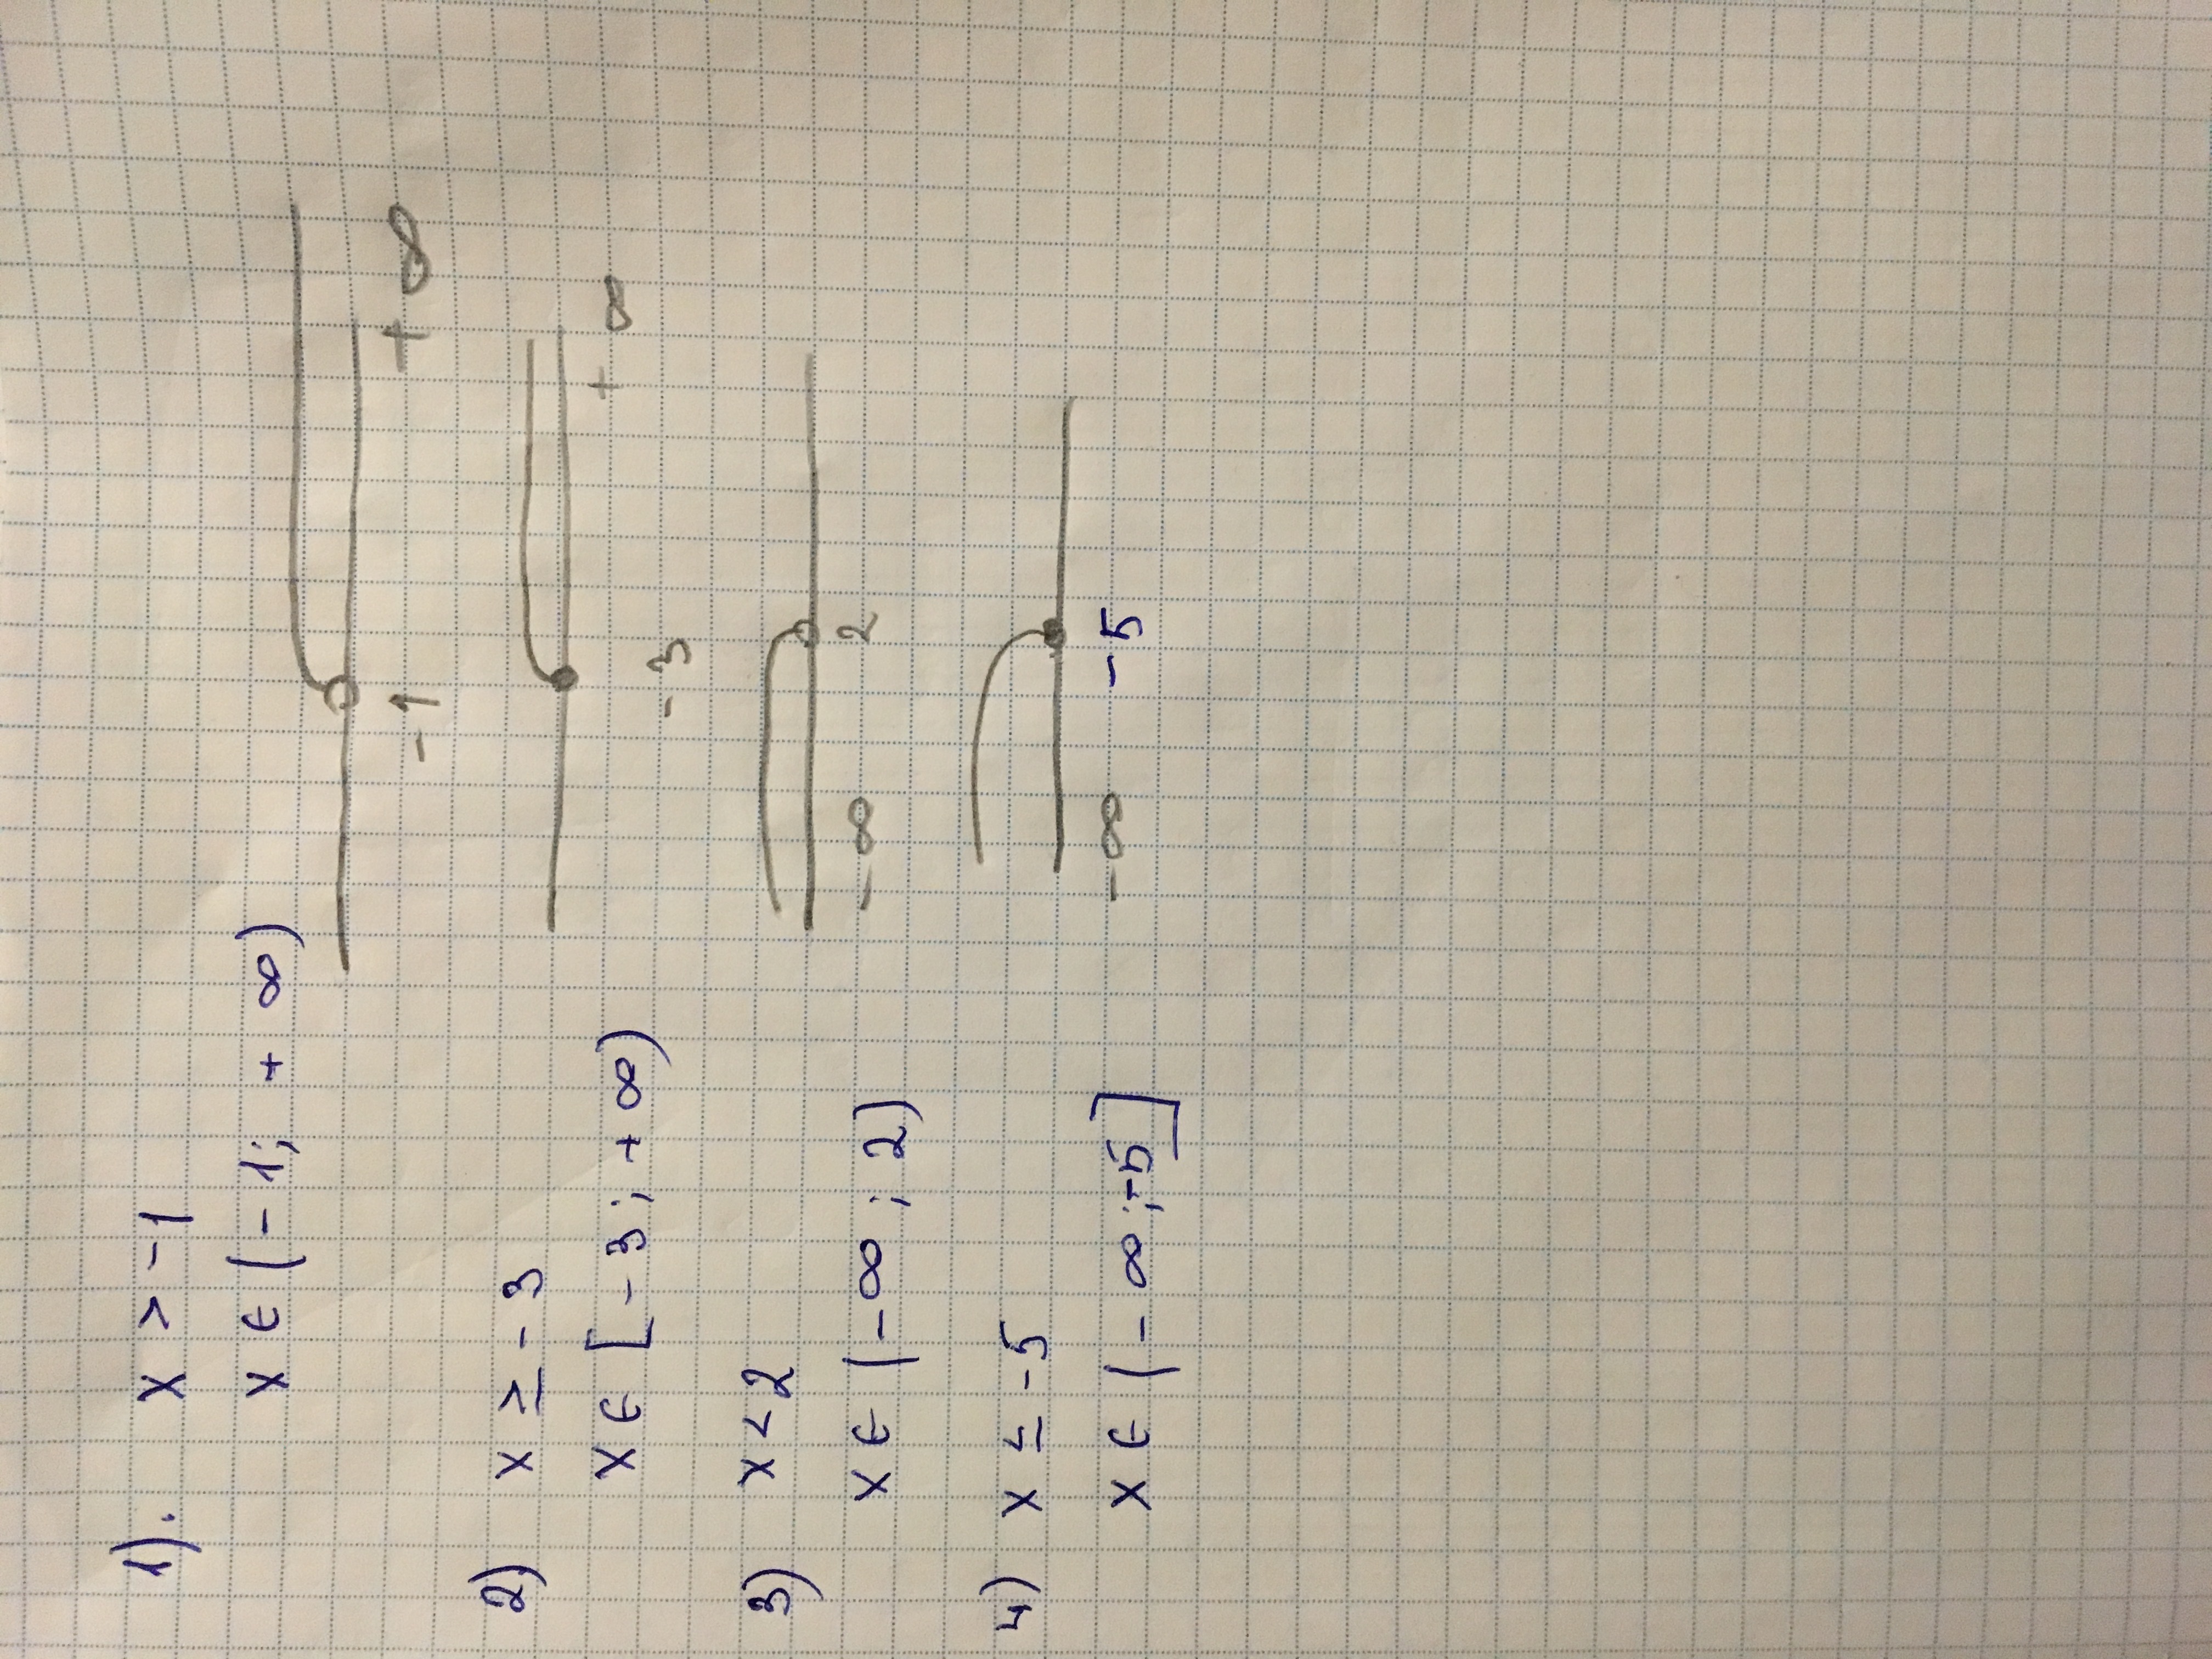 1). x > -1
x ∈ (-1; + ∞)
-1 + ∞
2) x ≥ -3
x ∈ [-3; +∞)
+ ∞
-3
3) x < 2
x ∈ (-∞; 2)
-∞ 2
4) x ≤ -5
x ∈ (-∞; -5]
-∞ -5